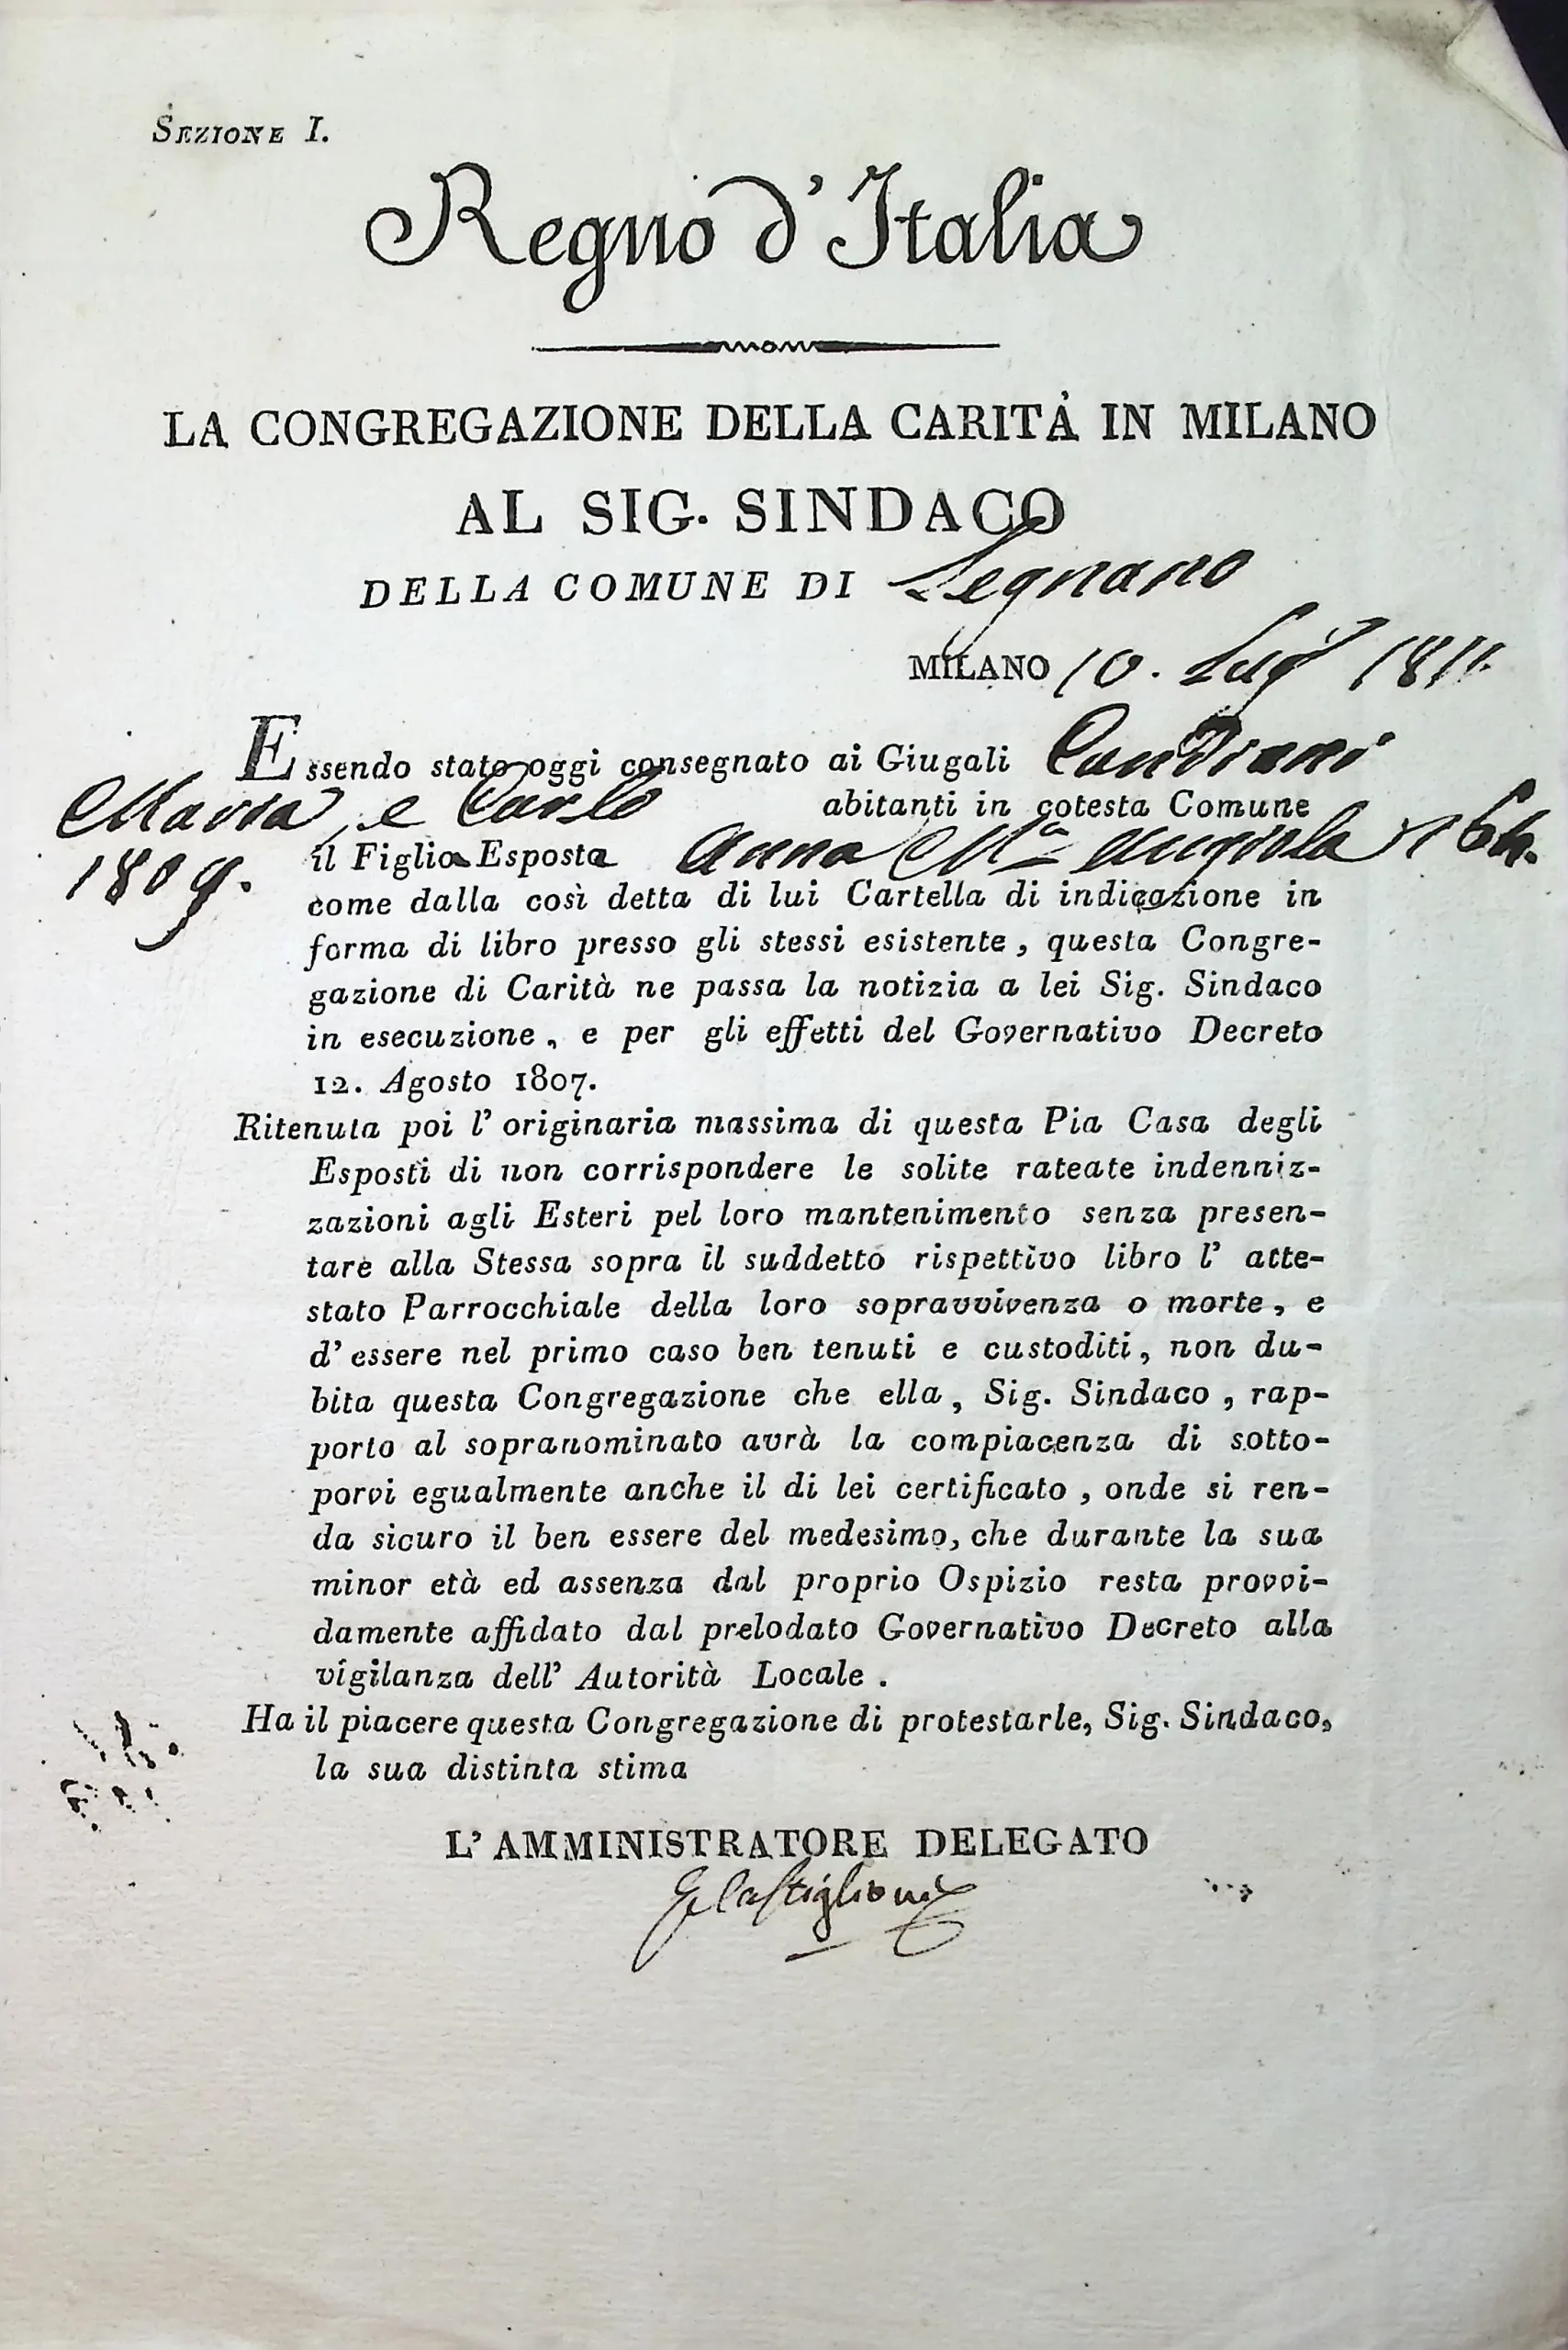 SEZIONE I.
Regno d'Italia
LA CONGREGAZIONE DELLA CARITÀ IN MILANO
AL SIG. SINDACO
DELLA COMUNE DI Legnano
MILANO 10. Lug 1811.
Essendo stato oggi consegnato ai Giugali Candiani
Maria, e Carlo abitanti in cotesta Comune
il Figlia Esposta Anna Ma Angiola
1809.
come dalla così detta di lui Cartella di indicazione in
forma di libro presso gli stessi esistente, questa Congre-
gazione di Carità ne passa la notizia a lei Sig. Sindaco
in esecuzione, e per gli effetti del Governativo Decreto
12. Agosto 1807.
Ritenuta poi l' originaria massima di questa Pia Casa degli
Esposti di non corrispondere le solite rateate indenniz-
zazioni agli Esteri pel loro mantenimento senza presen-
tare alla Stessa sopra il suddetto rispettivo libro l' atte-
stato Parrocchiale della loro sopravvivenza o morte, e
d' essere nel primo caso ben tenuti e custoditi, non du-
bita questa Congregazione che ella, Sig. Sindaco, rap-
porto al sopranominato avrà la compiacenza di sotto-
porvi egualmente anche il di lei certificato, onde si ren-
da sicuro il ben essere del medesimo, che durante la sua
minor età ed assenza dal proprio Ospizio resta provvi-
damente affidato dal prelodato Governativo Decreto alla
vigilanza dell' Autorità Locale.
Ha il piacere questa Congregazione di protestarle, Sig. Sindaco,
la sua distinta stima
L' AMMINISTRATORE DELEGATO
Castiglioni